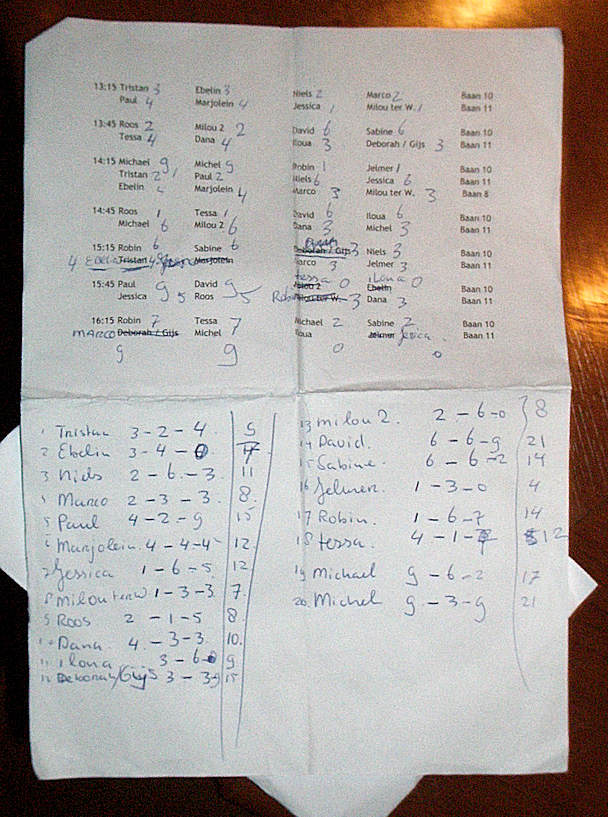 13:15 Tristan 3 Ebelin 3 Niels 2 Marco 2 Baan 10
Paul 4 Marjolein 4 Jessica 1 Milou ter W. 1 Baan 11
13:45 Roos 2 Milou 2 2 David 6 Sabine 6 Baan 10
Tessa 4 Dana 4 Iloua 3 Deborah / Gijs 3 Baan 11
14:15 Michael 9 Michel 9 Robin 1 Jelmer 1 Baan 10
Tristan 2 Paul 2 Niels 6 Jessica 6 Baan 11
Ebelin Marjolein 4 Marco 3 Milou ter W. 3 Baan 8
14:45 Roos 1 Tessa 1 David 6 Iloua 6 Baan 10
Michael 6 Milou 2 6 Dana 3 Michel 3 Baan 11
15:15 Robin 6 Sabine 6 Deborah / Gijs 3 Niels 3 Baan 10
4 Tristan 4 Marjolein Marco 3 Jelmer 3 Baan 11
Tessa 0 ilona 0
15:45 Paul 9 David 9 Milou 2 Ebelin Baan 10
Jessica 5 Roos 5 Robin Milou ter W. 3 Dana 3 Baan 11
16:15 Robin 7 Tessa 7 Michael 2 Sabine 2 Baan 10
MARCO Deborah / Gijs Michel Iloua Jelmer Jesica Baan 11
9 9 0 0
1 Tristan 3-2-4 9
2 Ebelin 3-4-0 7
3 Niels 2-6-3 11
4 Marco 2-3-3 8
5 Paul 4-2-9 15
6 Marjolein 4-4-4 12
7 Jessica 1-6-5 12
8 Milou ter W 1-3-3 7
9 Roos 2-1-5 8
10 Dana 4-3-3 10
11 ilona 3-6-0 9
12 Deborah/Gijs 3-3-9 15
13 milou 2. 2-6-0 8
14 David. 6-6-9 21
15 Sabine. 6-6-2 14
16 Jelmer. 1-3-0 4
17 Robin. 1-6-7 14
18 tessa. 4-1-7 12
19 Michael 9-6-2 17
20 Michel 9-3-9 21